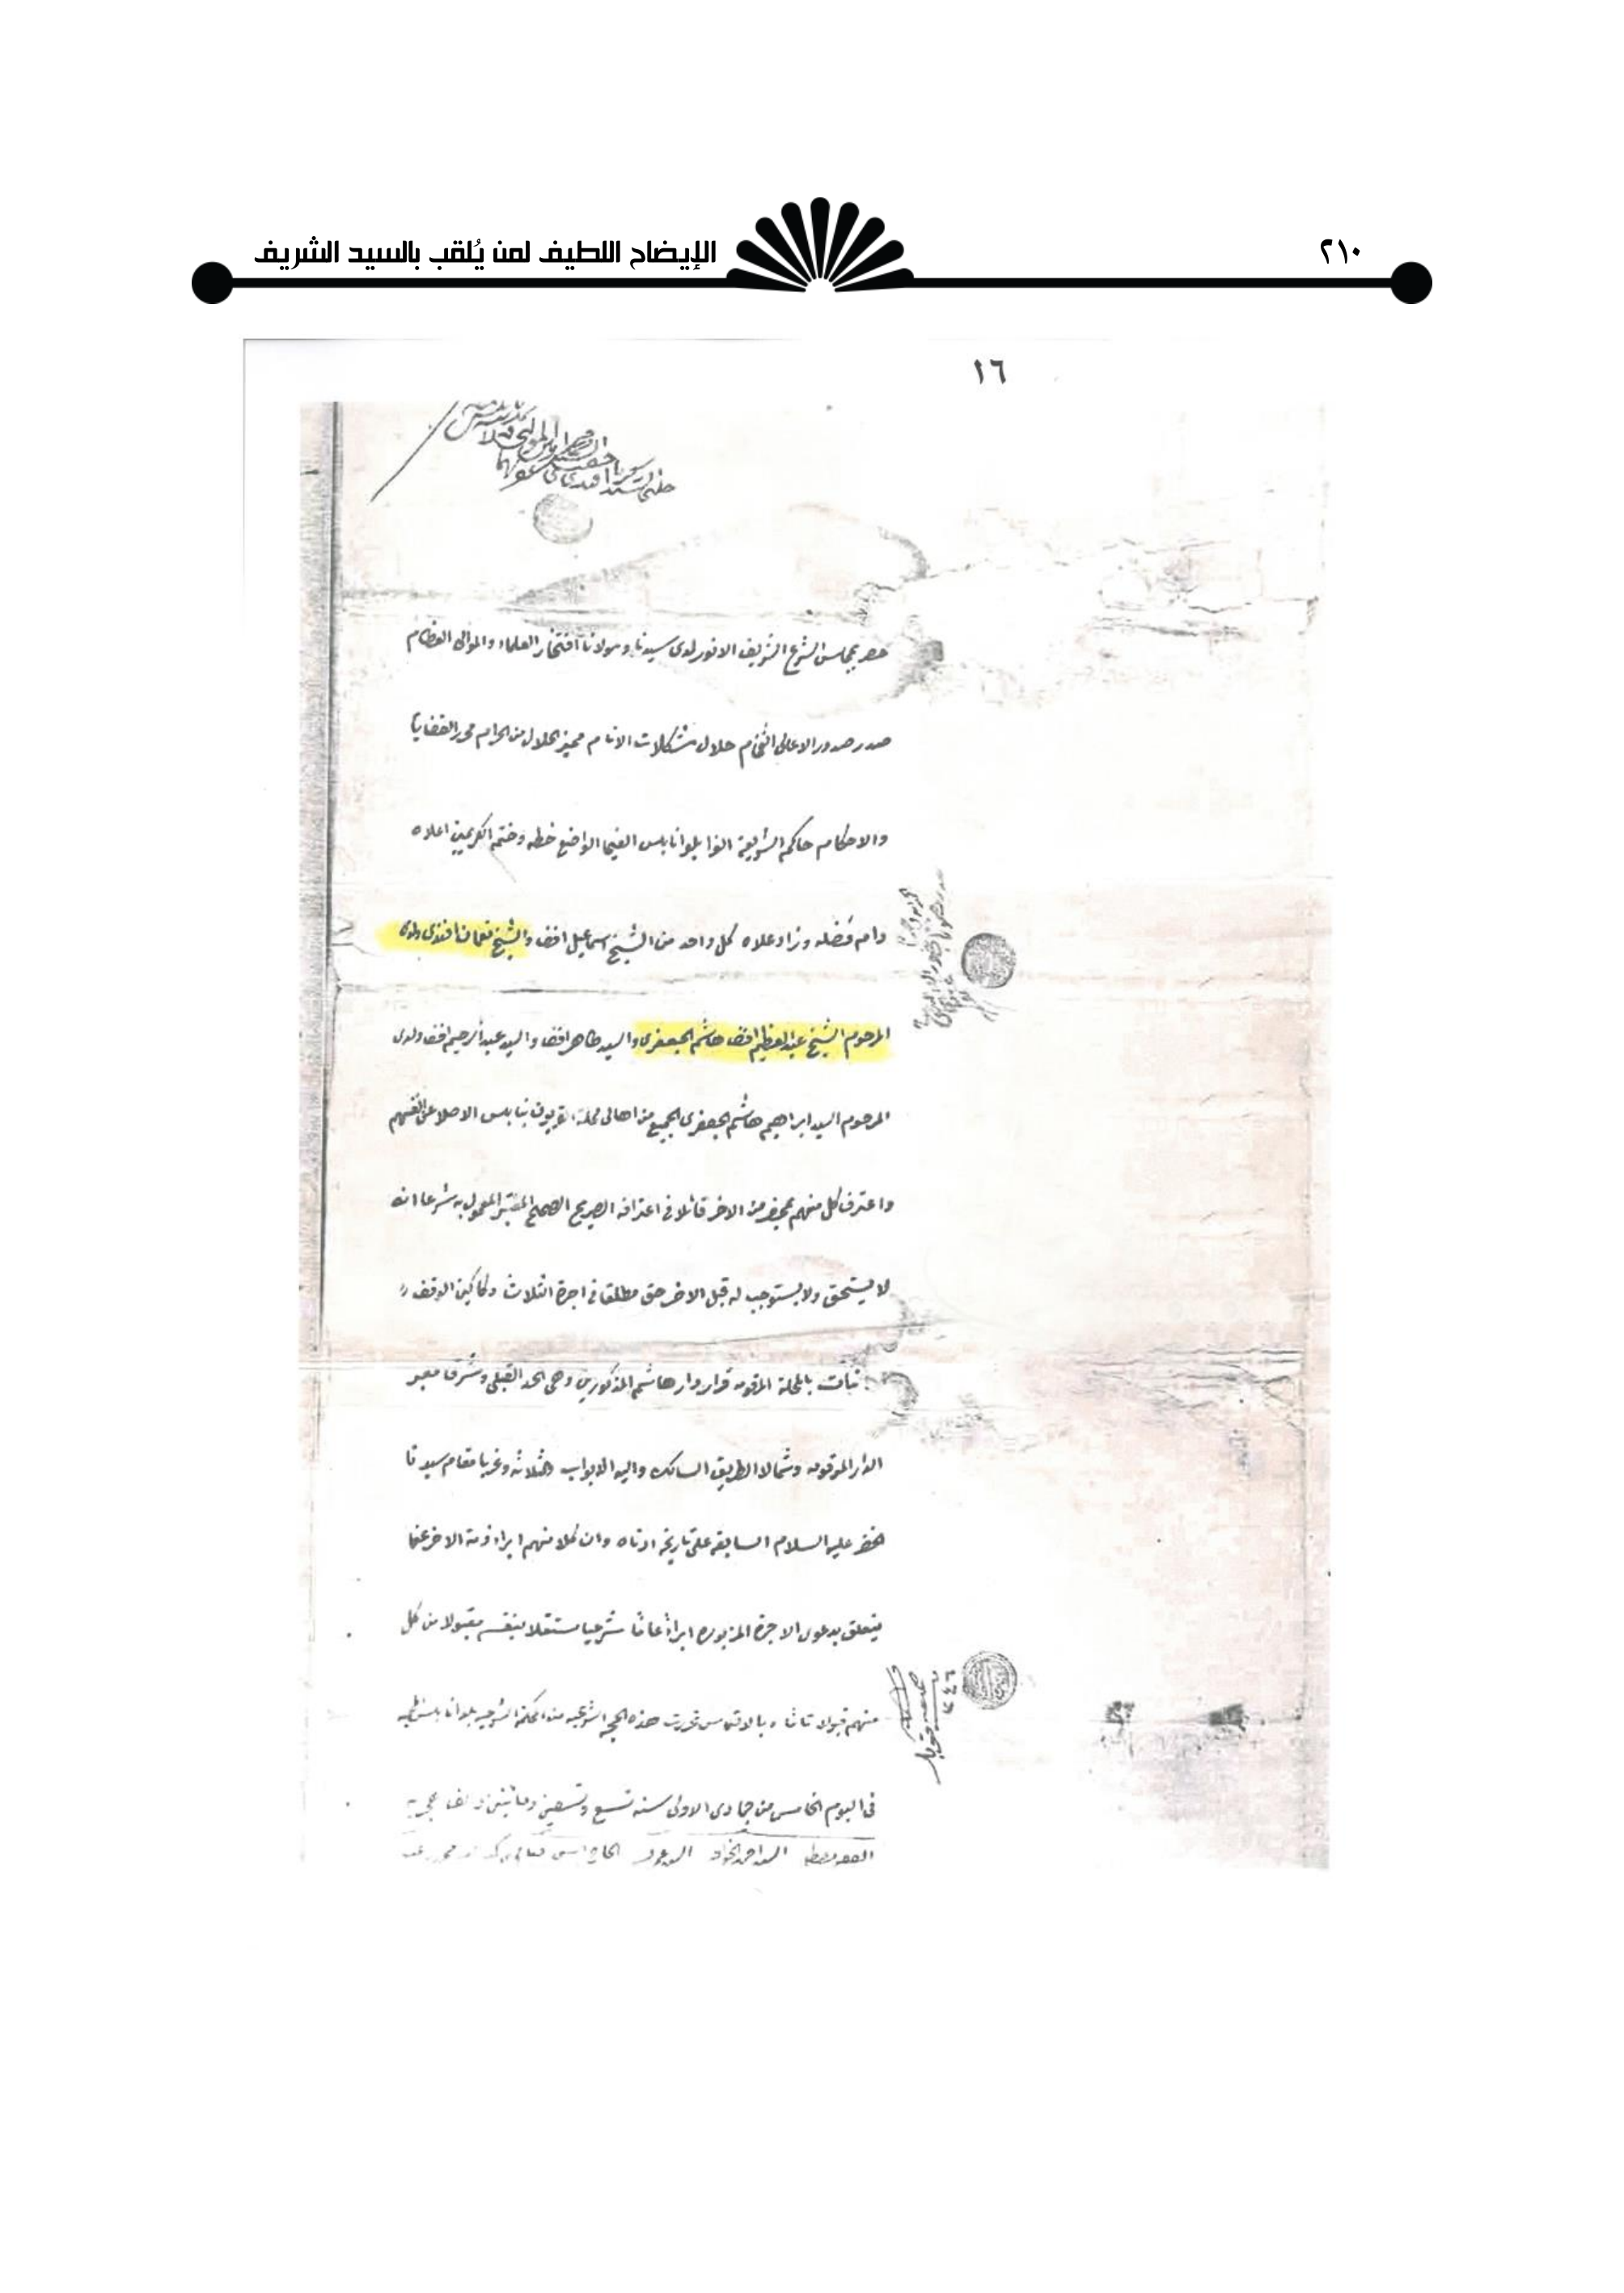 ٢١٠
الإيضاح اللطيف لمن يُلقب بالسيد الشريف
١٦
حضر بمجلس الشرع الشريف الانور لدى سيدنا ومولانا افتخار العلماء والموالى العظام
صدر صدور الاعالى الفخام حلال مشكلات الانام مميز الحلال من الحرام محرر القضايا
والاحكام حاكم الشريعة الغرا بلوا نابلس الفيحا الواضع خطه وختمه الكريمين اعلاه
دام فضله وزاد علاه كل واحد من الشيخ اسماعيل افند والشيخ نعمان افندى ولدى
المرحوم الشيخ عبد العظيم افند هاشم الجعفرى والسيد طاهر افند والسيد عبد الرحيم افند ولدى
المرحوم السيد ابراهيم هاشم الجعفرى الجميع من اهالى محلة القريون بنابلس الاصلا عن انفسهم
واعترف كل منهم بمحضر من الاخر قائلا فى اعترافه الصريح الصحيح المعتبر المعمول به شرعا انه
لا يستحق ولا يستوجب له قبل الاخر حق مطلقا فى اجرة الثلاث دكاكين الوقف
بالمحلة المرقومه قرار دار هاشم المذكورين وهى الحد القبلى وشرقا معبر
الدار المرقومه وشمالا الطريق السالك واليه الابواب الثلاثه وغربا مقام سيدنا
الخضر عليه السلام السابقه على تاريخه ادناه وان كلا منهم ابراء ذمة الاخر عما
يتعلق بدعوى الاجرة المزبوره ابراءً عاما شرعيا مستقلا بنفسه مقبولا من كل
منهم قبولا تاما وبالالتماس تحررت هذه الحجه الشرعيه من المحكمة الشرعيه بلوا نابلس
فى اليوم الخامس من جمادى الاولى سنه تسع وتسعين ومائتين والف هجريه
١٣٤٦